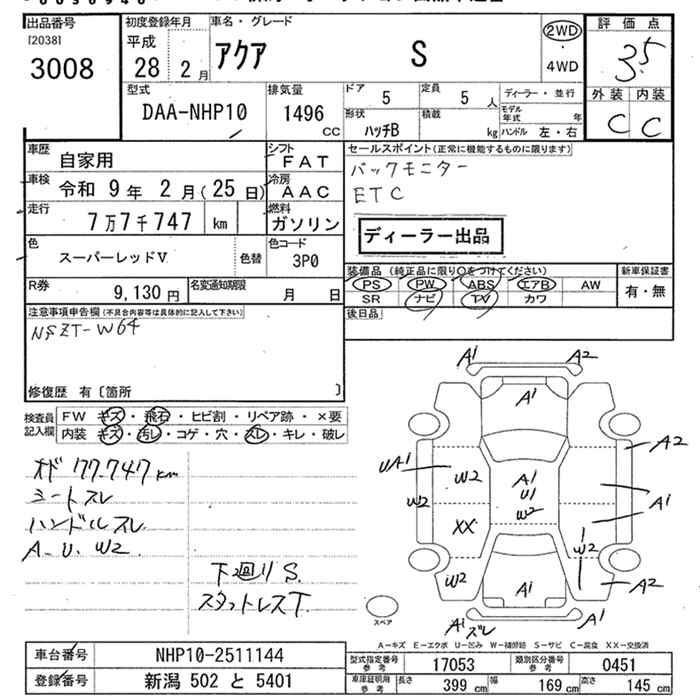 出品番号
[2038]
3008
初度登録年月
平成
28 2月
車名・グレード
アクア S
2WD
・
4WD
評価点
3.5
外装 内装
C C
型式
DAA-NHP10
排気量
1496
CC
ドア
5
定員
5 人
形状
ハッチB
積載
kg
ディーラー・並行
モデル年式 年
ハンドル 左・右
車歴
自家用
車検
令和 9年 2月(25日)
走行
7万7千747 km
シフト
FAT
冷房
AAC
燃料
ガソリン
色
スーパーレッドV
色替
色コード
3P0
R券
9,130円
名変通知期限
月 日
セールスポイント(正常に機能するものに限ります)
バックモニター
ETC
ディーラー出品
装備品(純正品に限り○をつけてください)
PS PW ABS エアB AW
SR ナビ TV カワ
新車保証書
有・無
後日品
注意事項申告欄(不具合内容等は具体的に記入して下さい)
NSZT-W64
修復歴 有〔箇所 〕
検査員記入欄
FW キズ・飛石・ヒビ割・リペア跡・×要
内装 キズ・汚レ・コゲ・穴・スレ・キレ・破レ
オド 77.747km
シートスレ
ハンドルスレ
A.U.W2
下回りS.
スタットレスT.
A1 A2
A1
A2
UA1
W2
A1
U1
W2
W2
A1
XX
W2
W2
A1
A2
A1
スレ
A1
スペア
A-キズ E-エクボ U-凹み W-補修跡 S-サビ C-腐食 XX-交換済
車台番号
NHP10-2511144
登録番号
新潟 502 と 5401
型式指定番号
参考
17053
類別区分番号
参考
0451
車庫証明用
参考
長さ 399 cm
幅 169 cm
高さ 145 cm